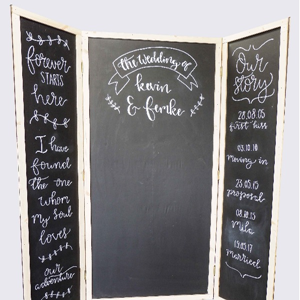 forever
STARTS
here
I have
found
the one
whom
my soul
loves
our
adventure
the wedding of
kevin
& femke
Our
story
28.08.05
first kiss
03.12.10
Moving in
23.05.15
proposal
Mila
Married